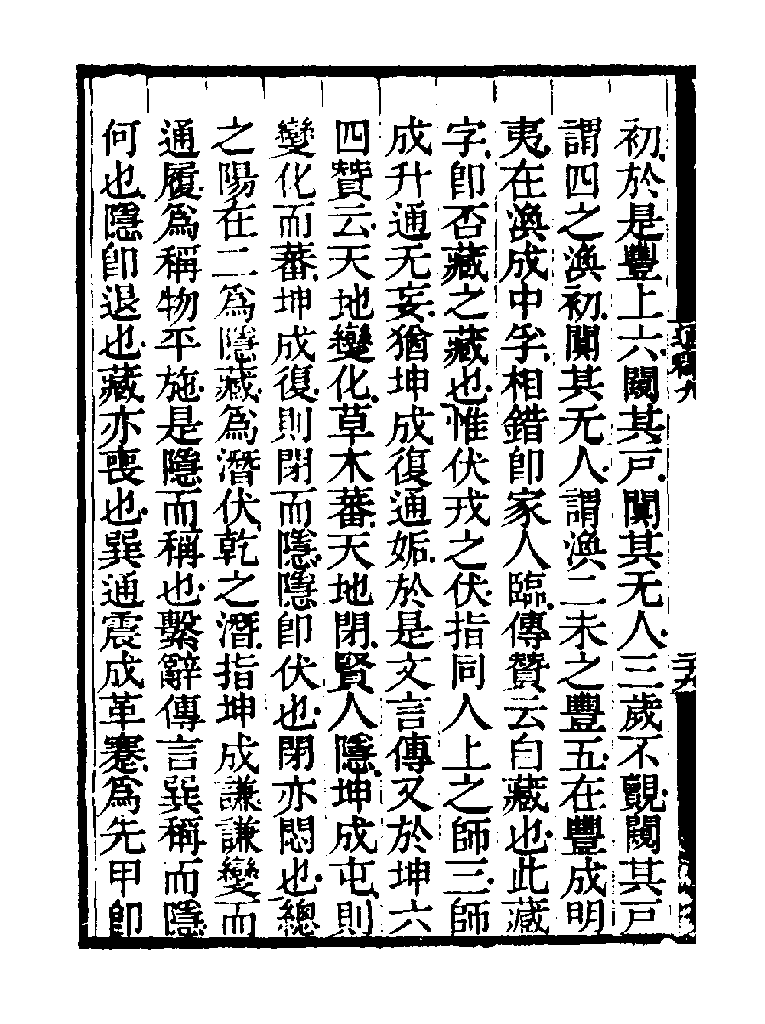 初於是豐上六闚其戸闃其无人三歲不覿闚其戸
謂四之渙初闃其无人謂渙二未之豐五在豐成明
夷在渙成中孚相錯卽家人臨傳贊云自藏也此藏
字卽否藏之藏也惟伏戎之伏指同人上之師三師
成升通无妄猶坤成復通姤於是文言傳又於坤六
四贊云天地變化草木蕃天地閉賢人隱坤成屯則
變化而蕃坤成復則閉而隱隱卽伏也閉亦悶也總
之陽在二爲隱藏爲潛伏乾之潛指坤成謙謙變而
通履爲稱物平施是隱而稱也繫辭傳言巽稱而隱
何也隱卽退也藏亦喪也巽通震成革蹇爲先甲卽